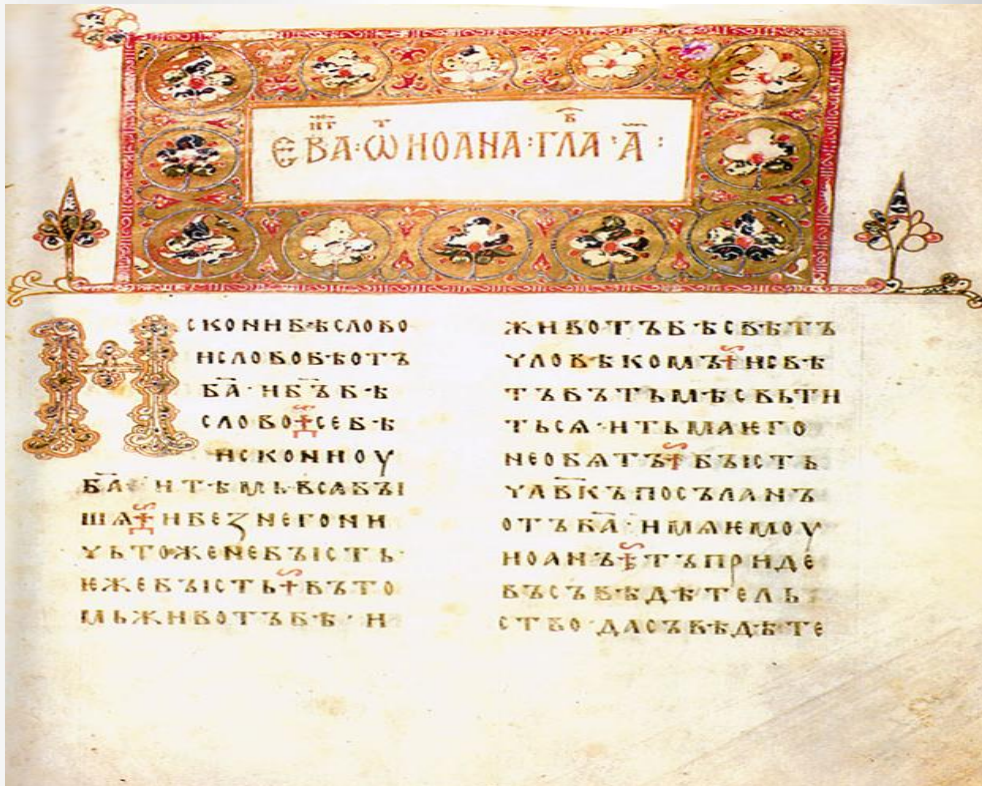 ЕВА҃НГ · Ѡ҃Т ИОАНА · ГЛА҃В · А҃ ·
ИСКОНИБѢСЛОВО
ИСЛОВОБѢОТЪ
Б҃А · ИБ҃ЪБѢ
СЛОВО ☨ СЕБѢ
ИСКОНИОУ
Б҃А · ИТѢМЬВСАБЪІ
ШѦ ☨ ИБЕЗНЕГОНИ
ЧЬТОЖЕНЕБЪІСТЬ ·
ѤЖЕБЪІСТЬ ☨ ВЪТО
МЬЖИВОТЪБѢ · И
ЖИВОТЪБѢСВѢТЪ
ЧЛОВѢКОМЪ ☨ ИСВѢ
ТЪВЪТЬМѢСВЬТИ
ТЬСѦ · ИТЬМАѤГО
НЕОБѦТЪ ☨ БЪІСТЬ
ЧЛВ҃КЪПОСЪЛАНЪ
ОТЪБ҃А · ИМѦѤМОУ
ИОАНЪ ☨ ТЪПРИДЕ
ВЪСЪВѢДѢТЕЛЬ
СТВО · ДАСЪВѢДѢТЕ